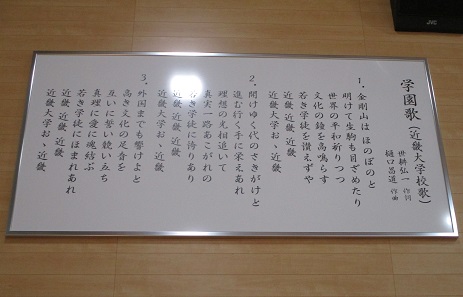 学園歌(近畿大学校歌)
世耕弘一 作詞
樋口昌道 作曲
1、金剛山はほのぼのと
明けて生駒も目ざめたり
世界の平和祈りつつ
文化の鐘を高鳴らす
若き学徒を讃えずや
近畿 近畿 近畿
近畿大学お、近畿
2、開けゆく代のさきがけと
進む行く手に栄えあれ
理想の光相追いて
真実一路あこがれの
若き学徒に誇りあり
近畿 近畿 近畿
近畿大学お、近畿
3、外国までも響けよと
高き文化の足音を
互いに誓い競い立ち
真理に愛に魂結ぶ
若き学徒にほまれあれ
近畿 近畿 近畿
近畿大学お、近畿
JVC